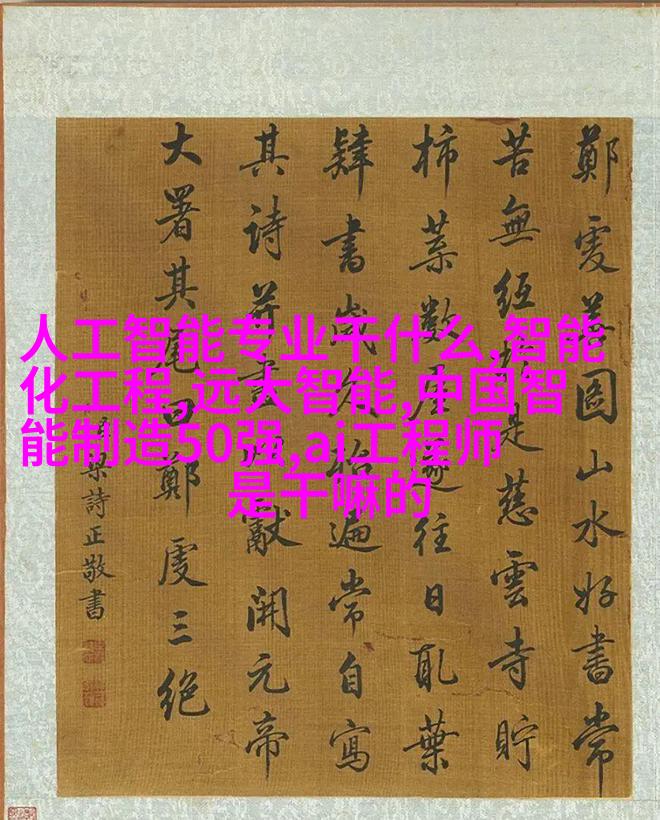 鄭虔善圖山水好書常
苦無紙於是慈雲寺貯
柿葉數屋遂往日取葉
肄書歲久殆遍常自寫
其詩并畫以獻開元帝
大署其尾曰鄭虔三絕
梁詩正敬書
人工智能专业干什么,智能
化工程,远大智能,中国智
能制造50强,ai工程师
是干嘛的